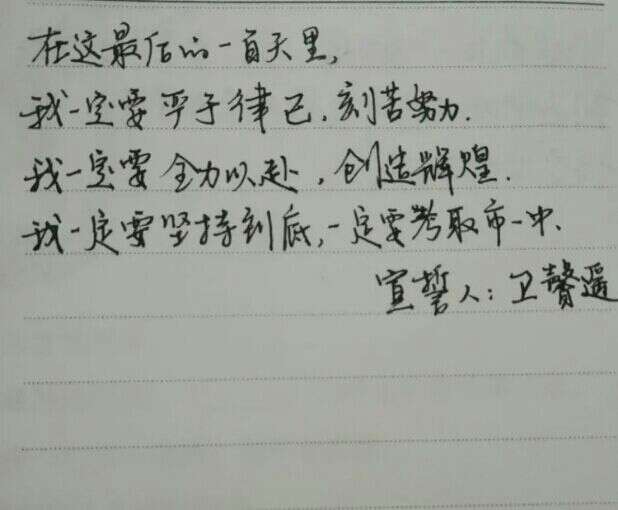 在这最后的一百天里,
我一定要严于律己,刻苦努力.
我一定要全力以赴,创造辉煌.
我一定要坚持到底,一定要考取市一中.
宣誓人:卫馨遥